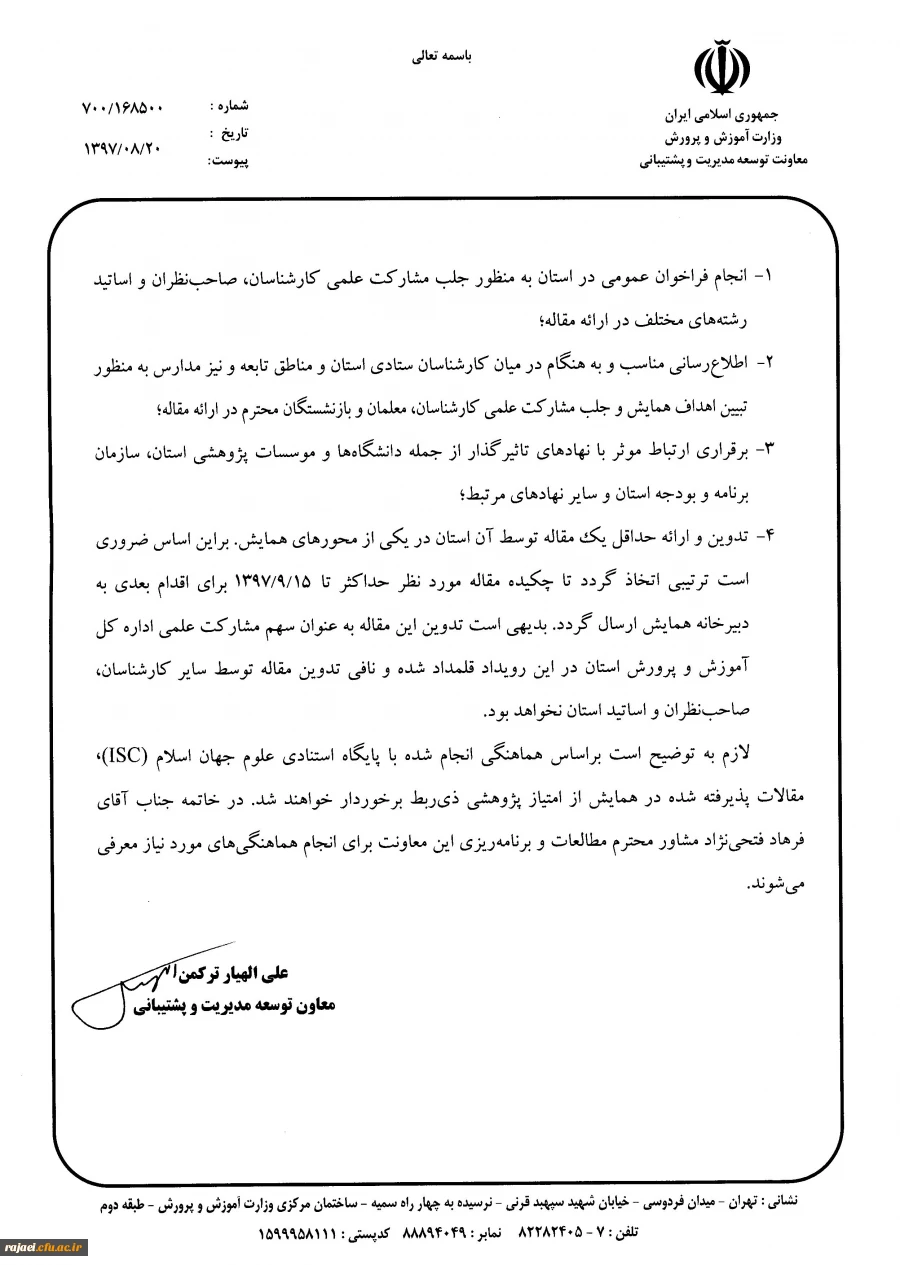 باسمه تعالی
جمهوری اسلامی ایران
وزارت آموزش و پرورش
معاونت توسعه مدیریت و پشتیبانی
شماره : ۷۰۰/۱۶۸۵۰۰
تاریخ : ۱۳۹۷/۰۸/۲۰
پیوست:
۱- انجام فراخوان عمومی در استان به منظور جلب مشارکت علمی کارشناسان، صاحب‌نظران و اساتید
رشته‌های مختلف در ارائه مقاله؛
۲- اطلاع‌رسانی مناسب و به هنگام در میان کارشناسان ستادی استان و مناطق تابعه و نیز مدارس به منظور
تبیین اهداف همایش و جلب مشارکت علمی کارشناسان، معلمان و بازنشستگان محترم در ارائه مقاله؛
۳- برقراری ارتباط موثر با نهادهای تاثیرگذار از جمله دانشگاه‌ها و موسسات پژوهشی استان، سازمان
برنامه و بودجه استان و سایر نهادهای مرتبط؛
۴- تدوین و ارائه حداقل یک مقاله توسط آن استان در یکی از محورهای همایش. براین اساس ضروری
است ترتیبی اتخاذ گردد تا چکیده مقاله مورد نظر حداکثر تا ۱۳۹۷/۹/۱۵ برای اقدام بعدی به
دبیرخانه همایش ارسال گردد. بدیهی است تدوین این مقاله به عنوان سهم مشارکت علمی اداره کل
آموزش و پرورش استان در این رویداد قلمداد شده و نافی تدوین مقاله توسط سایر کارشناسان،
صاحب‌نظران و اساتید استان نخواهد بود.
لازم به توضیح است براساس هماهنگی انجام شده با پایگاه استنادی علوم جهان اسلام (ISC)،
مقالات پذیرفته شده در همایش از امتیاز پژوهشی ذی‌ربط برخوردار خواهند شد. در خاتمه جناب آقای
فرهاد فتحی‌نژاد مشاور محترم مطالعات و برنامه‌ریزی این معاونت برای انجام هماهنگی‌های مورد نیاز معرفی
می‌شوند.
علی الهیار ترکمن
معاون توسعه مدیریت و پشتیبانی
نشانی : تهران - میدان فردوسی - خیابان شهید سپهبد قرنی - نرسیده به چهار راه سمیه - ساختمان مرکزی وزارت آموزش و پرورش - طبقه دوم
تلفن : ۷ - ۸۲۲۸۲۴۰۵ نمابر : ۸۸۸۹۴۰۴۹ کدپستی : ۱۵۹۹۹۵۸۱۱۱
rajaei.cfu.ac.ir